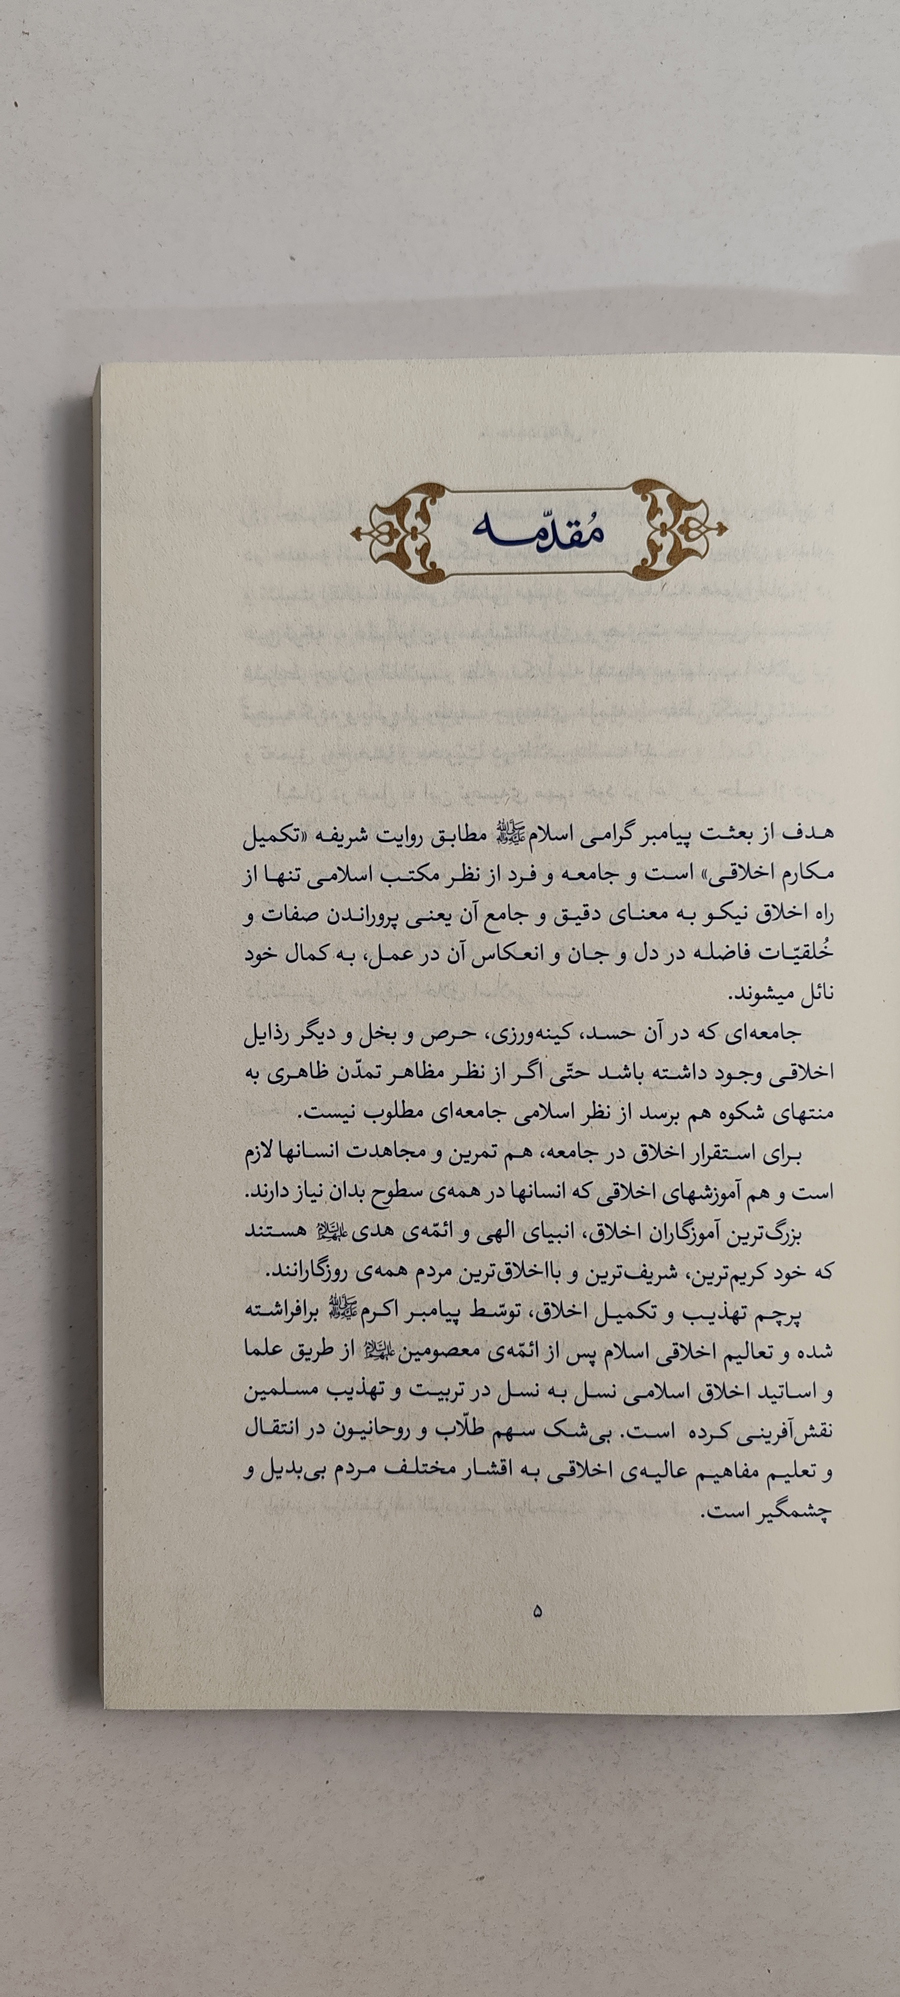 مُقدّمه
هدف از بعثت پیامبر گرامی اسلامﷺ مطابق روایت شریفه «تکمیل
مکارم اخلاقی» است و جامعه و فرد از نظر مکتب اسلامی تنها از
راه اخلاق نیکو به معنای دقیق و جامع آن یعنی پروراندن صفات و
خُلقیّات فاضله در دل و جان و انعکاس آن در عمل، به کمال خود
نائل میشوند.
جامعه‌ای که در آن حسد، کینه‌ورزی، حرص و بخل و دیگر رذایل
اخلاقی وجود داشته باشد حتّی اگر از نظر مظاهر تمدّن ظاهری به
منتهای شکوه هم برسد از نظر اسلامی جامعه‌ای مطلوب نیست.
برای استقرار اخلاق در جامعه، هم تمرین و مجاهدت انسانها لازم
است و هم آموزشهای اخلاقی که انسانها در همه‌ی سطوح بدان نیاز دارند.
بزرگ‌ترین آموزگاران اخلاق، انبیای الهی و ائمّه‌ی هدی علیهم‌السلام هستند
که خود کریم‌ترین، شریف‌ترین و بااخلاق‌ترین مردم همه‌ی روزگارانند.
پرچم تهذیب و تکمیل اخلاق، توسّط پیامبر اکرمﷺ برافراشته
شده و تعالیم اخلاقی اسلام پس از ائمّه‌ی معصومین علیهم‌السلام از طریق علما
و اساتید اخلاق اسلامی نسل به نسل در تربیت و تهذیب مسلمین
نقش‌آفرینی کرده است. بی‌شک سهم طلّاب و روحانیون در انتقال
و تعلیم مفاهیم عالیه‌ی اخلاقی به اقشار مختلف مردم بی‌بدیل و
چشمگیر است.
۵